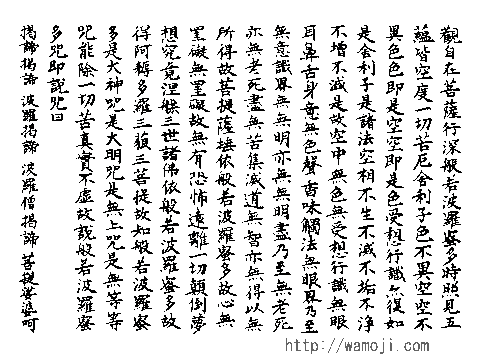 觀自在菩薩行深般若波羅蜜多時照見五
蘊皆空度一切苦厄舍利子色不異空空不
異色色即是空空即是色受想行識亦復如
是舍利子是諸法空相不生不滅不垢不淨
不增不減是故空中無色無受想行識無眼
耳鼻舌身意無色聲香味觸法無眼界乃至
無意識界無無明亦無無明盡乃至無老死
亦無老死盡無苦集滅道無智亦無得以無
所得故菩提薩埵依般若波羅蜜多故心無
罣礙無罣礙故無有恐怖遠離一切顛倒夢
想究竟涅槃三世諸佛依般若波羅蜜多故
得阿耨多羅三藐三菩提故知般若波羅蜜
多是大神咒是大明咒是無上咒是無等等
咒能除一切苦真實不虛故説般若波羅蜜
多咒即説咒曰
揭諦揭諦 波羅揭諦 波羅僧揭諦 菩提娑婆呵
http://wamoji.com/